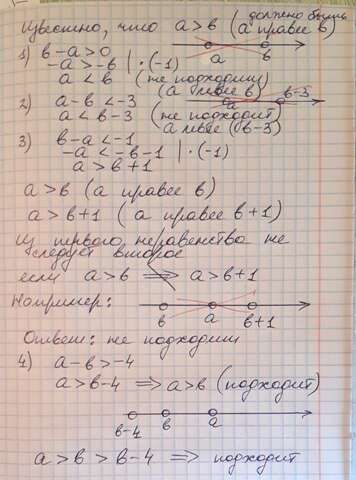 должно быть
Известно, что a > в (а правее в)
a в
1) в – a > 0
–a > –в | · (–1)
a < в (не подходит)
(а левее в)
2) a – в < –3
a < в – 3 (не подходит)
а левее (в–3)
a в–3
3) в – a < –1
–a < –в – 1 | · (–1)
a > в + 1
a > в (а правее в)
a > в + 1 (а правее в + 1)
Из первого неравенства не
следует второе
если a > в ⇒ a > в + 1
Например:
в a в+1
Ответ: не подходит
4) a – в > –4
a > в – 4 ⇒ a > в (подходит)
в–4 в a
a > в > в – 4 ⇒ подходит